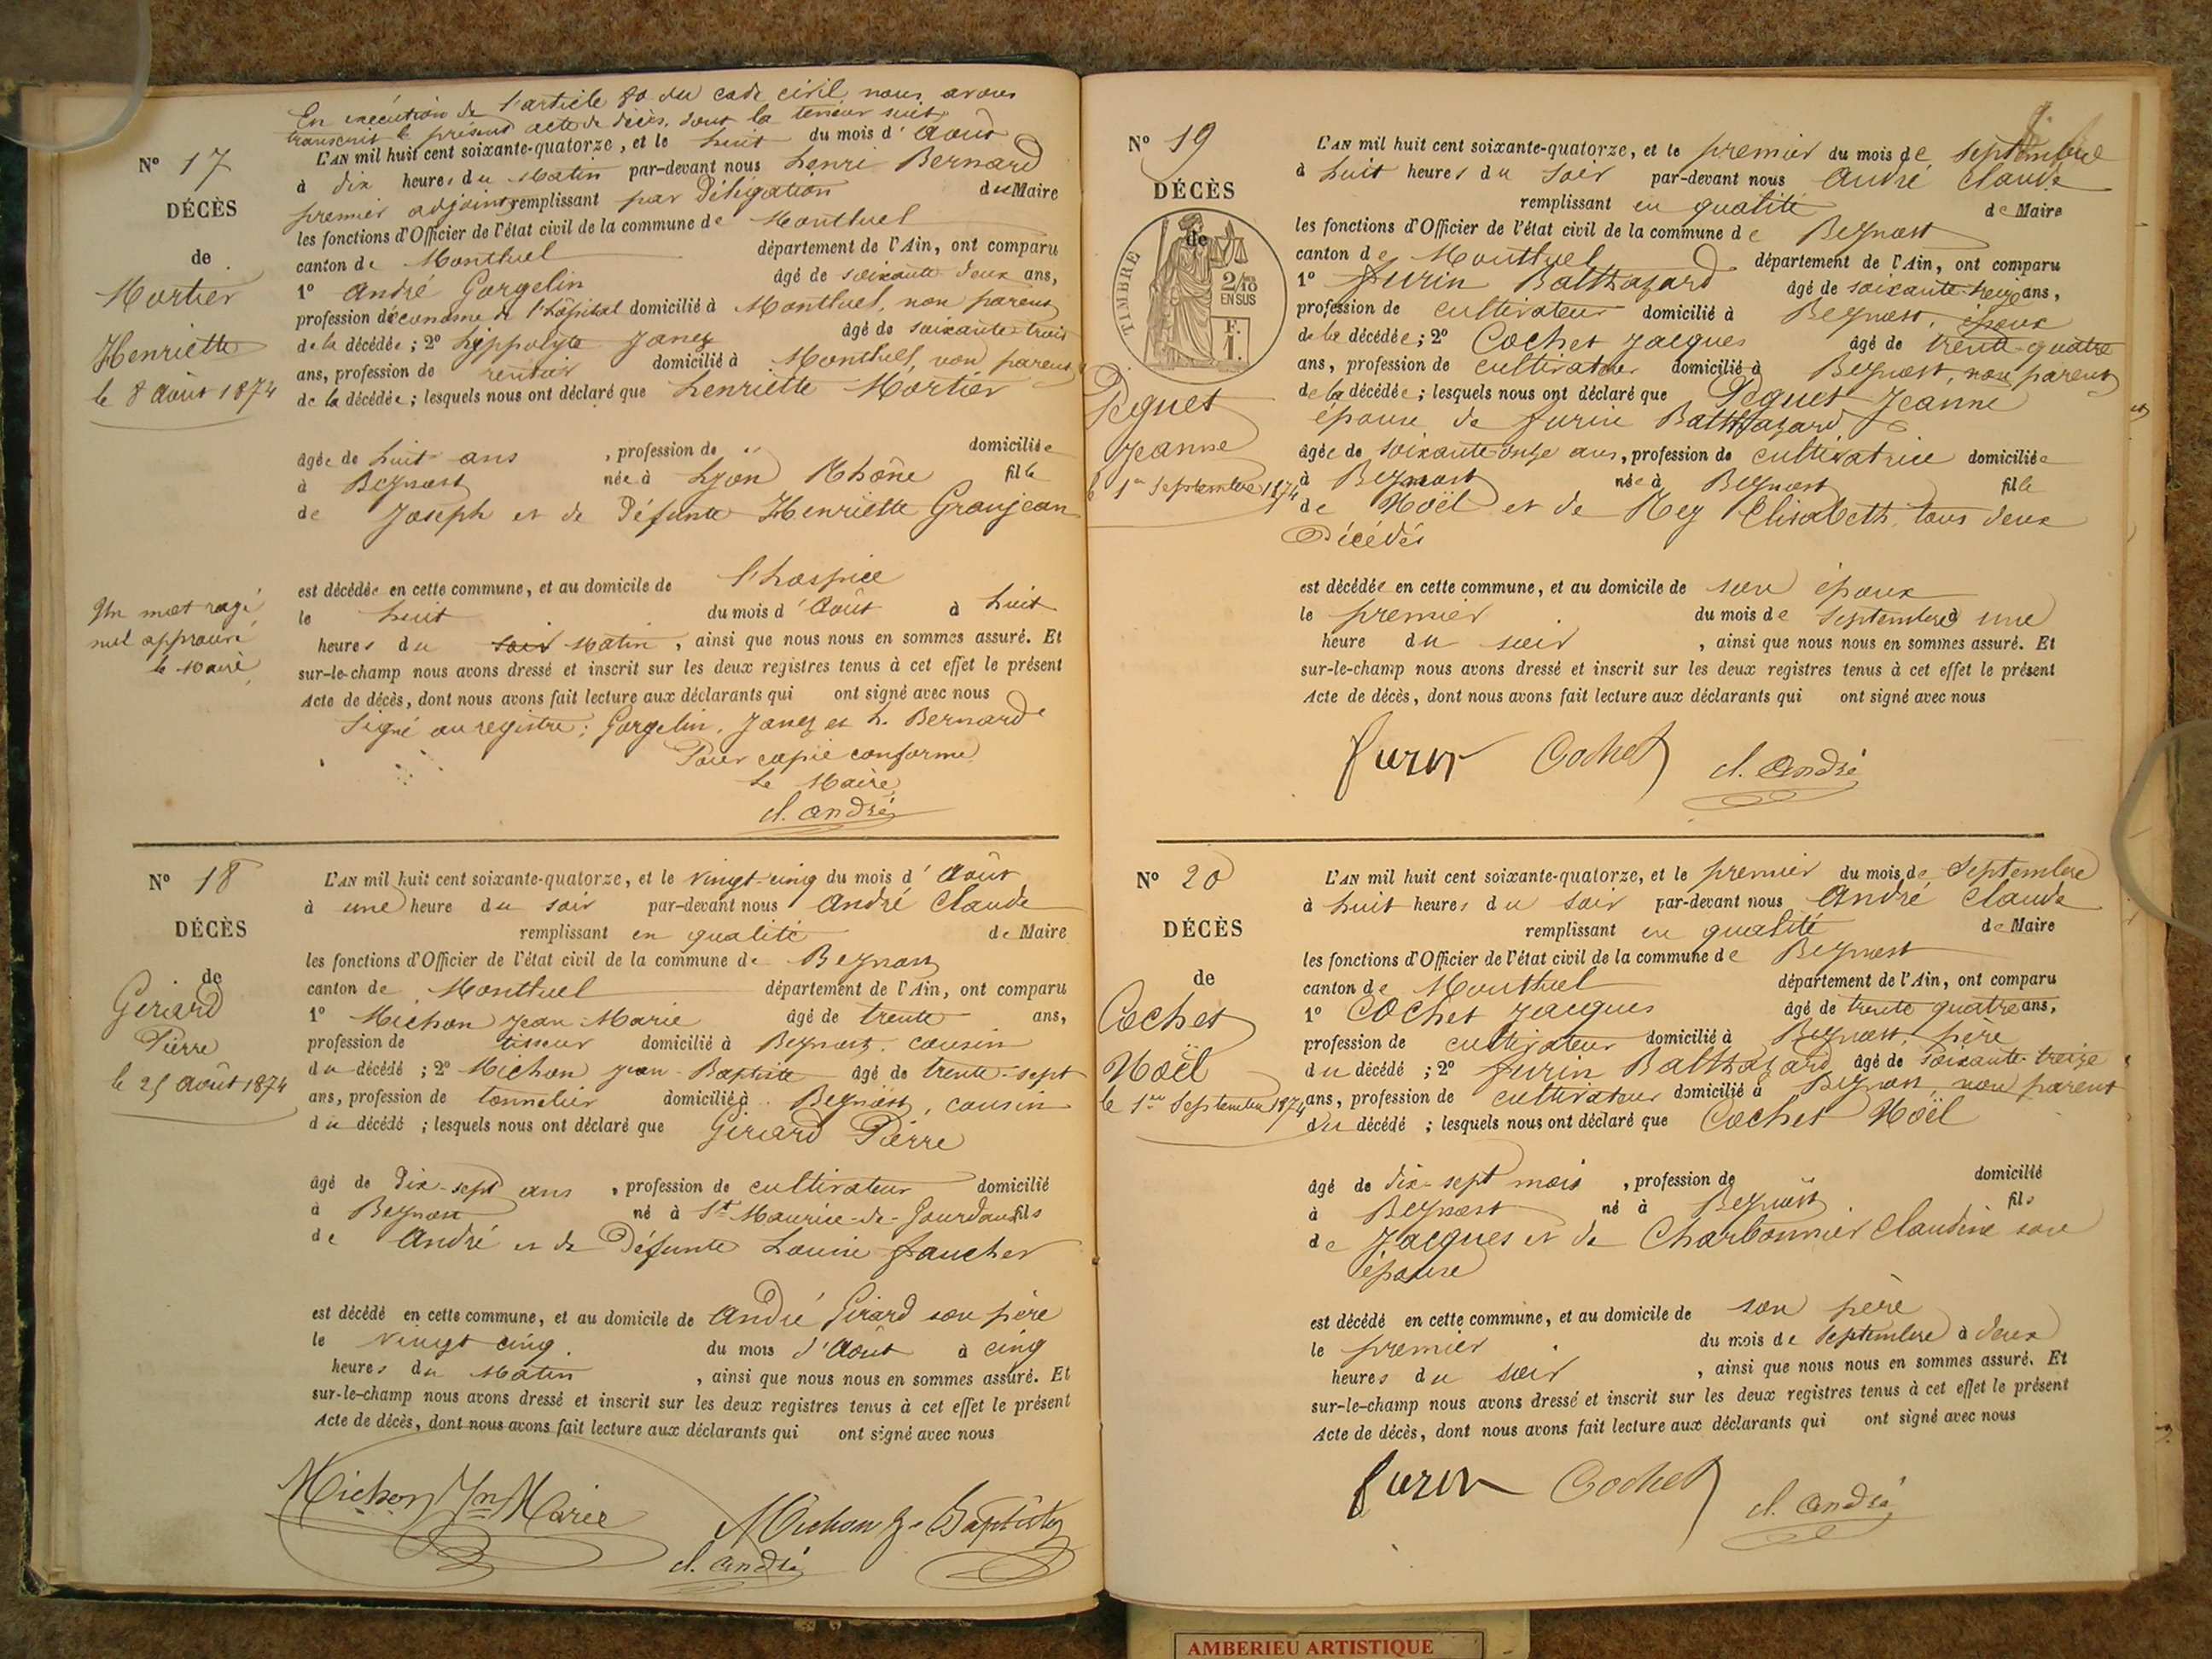 En exécution de l'article 80 du code civil nous avons
transcrit le présent acte de décès, dont la teneur suit
N° 17
DÉCÈS
de
Mortier
Henriette
le 8 Août 1874
L'AN mil huit cent soixante-quatorze, et le huit du mois d'Août
à dix heures du Matin par-devant nous henri Bernard
premier adjoint remplissant par Délégation du Maire
les fonctions d'Officier de l'état civil de la commune de Montluel
canton de Montluel département de l'Ain, ont comparu
1° André Gorgelin âgé de soixante deux ans,
profession d'économe de l'hôpital domicilié à Montluel, non parent
de la décédée ; 2° hyppolyte Janez âgé de soixante-trois
ans, profession de rentier domicilié à Montluel, non parent
de la décédée ; lesquels nous ont déclaré que henriette Mortier
âgée de huit ans , profession de " domiciliée
à Beynost née à Lyon Rhône fille
de Joseph et de Défunte Henriette Granjean
est décédée en cette commune, et au domicile de l'hospice
le huit du mois d'Août à huit
heures du soir Matin , ainsi que nous nous en sommes assuré. Et
sur-le-champ nous avons dressé et inscrit sur les deux registres tenus à cet effet le présent
Acte de décès, dont nous avons fait lecture aux déclarants qui ont signé avec nous
Un mot rayé
nul approuvé
le Maire
Signé au registre : Gorgelin, Janez et h. Bernard
Pour copie conforme
Le Maire
Cl. André
N° 18
DÉCÈS
de
Girard
Pierre
le 25 Août 1874
L'AN mil huit cent soixante-quatorze, et le vingt-cinq du mois d'Août
à une heure du soir par-devant nous André Claude
remplissant en qualité de Maire
les fonctions d'Officier de l'état civil de la commune de Beynost
canton de Montluel département de l'Ain, ont comparu
1° Michon Jean-Marie âgé de trente ans,
profession de tisseur domicilié à Beynost, cousin
du décédé ; 2° Michon Jean-Baptiste âgé de trente-sept
ans, profession de tonnelier domicilié à Beynost, cousin
du décédé ; lesquels nous ont déclaré que Girard Pierre
âgé de Dix-sept ans , profession de cultivateur domicilié
à Beynost né à St Maurice-de-Gourdans fils
de André et de Défunte Louise Faucher
est décédé en cette commune, et au domicile de André Girard son père
le vingt cinq du mois d'Août à cinq
heures du Matin , ainsi que nous nous en sommes assuré. Et
sur-le-champ nous avons dressé et inscrit sur les deux registres tenus à cet effet le présent
Acte de décès, dont nous avons fait lecture aux déclarants qui ont signé avec nous
Michon Jn Marie
Michon J. Baptiste
Cl. André
N° 19
DÉCÈS
de
TIMBRE
2/10
EN SUS
F.
1.
Peguet
Jeanne
le 1er Septembre 1874
L'AN mil huit cent soixante-quatorze, et le premier du mois de Septembre
à huit heures du soir par-devant nous André Claude
remplissant en qualité de Maire
les fonctions d'Officier de l'état civil de la commune de Beynost
canton de Montluel département de l'Ain, ont comparu
1° furin Balthazard âgé de soixante-treize ans,
profession de cultivateur domicilié à Beynost, époux
de la décédée ; 2° Cochet Jacques âgé de trente-quatre
ans, profession de cultivateur domicilié à Beynost, non parent
de la décédée ; lesquels nous ont déclaré que Peguet Jeanne
épouse de furin Balthazard
âgée de soixante-onze ans , profession de cultivatrice domiciliée
à Beynost née à Beynost fille
de Noël et de Rey Elisabeth, tous deux
Décédés
est décédée en cette commune, et au domicile de son époux
le premier du mois de Septembre à une
heure du soir , ainsi que nous nous en sommes assuré. Et
sur-le-champ nous avons dressé et inscrit sur les deux registres tenus à cet effet le présent
Acte de décès, dont nous avons fait lecture aux déclarants qui ont signé avec nous
furin Cochet Cl. André
N° 20
DÉCÈS
de
Cochet
Noël
le 1er Septembre 1874
L'AN mil huit cent soixante-quatorze, et le premier du mois de Septembre
à huit heures du soir par-devant nous André Claude
remplissant en qualité de Maire
les fonctions d'Officier de l'état civil de la commune de Beynost
canton de Montluel département de l'Ain, ont comparu
1° Cochet Jacques âgé de trente quatre ans,
profession de cultivateur domicilié à Beynost, père
du décédé ; 2° furin Balthazard âgé de soixante-treize
ans, profession de cultivateur domicilié à Beynost, non parent
du décédé ; lesquels nous ont déclaré que Cochet Noël
âgé de dix-sept mois , profession de domicilié
à Beynost né à Beynost fils
de Jacques et de Charbonnier Claudine son
épouse
est décédé en cette commune, et au domicile de son père
le premier du mois de Septembre à deux
heures du soir , ainsi que nous nous en sommes assuré. Et
sur-le-champ nous avons dressé et inscrit sur les deux registres tenus à cet effet le présent
Acte de décès, dont nous avons fait lecture aux déclarants qui ont signé avec nous
furin Cochet Cl. André
AMBERIEU ARTISTIQUE